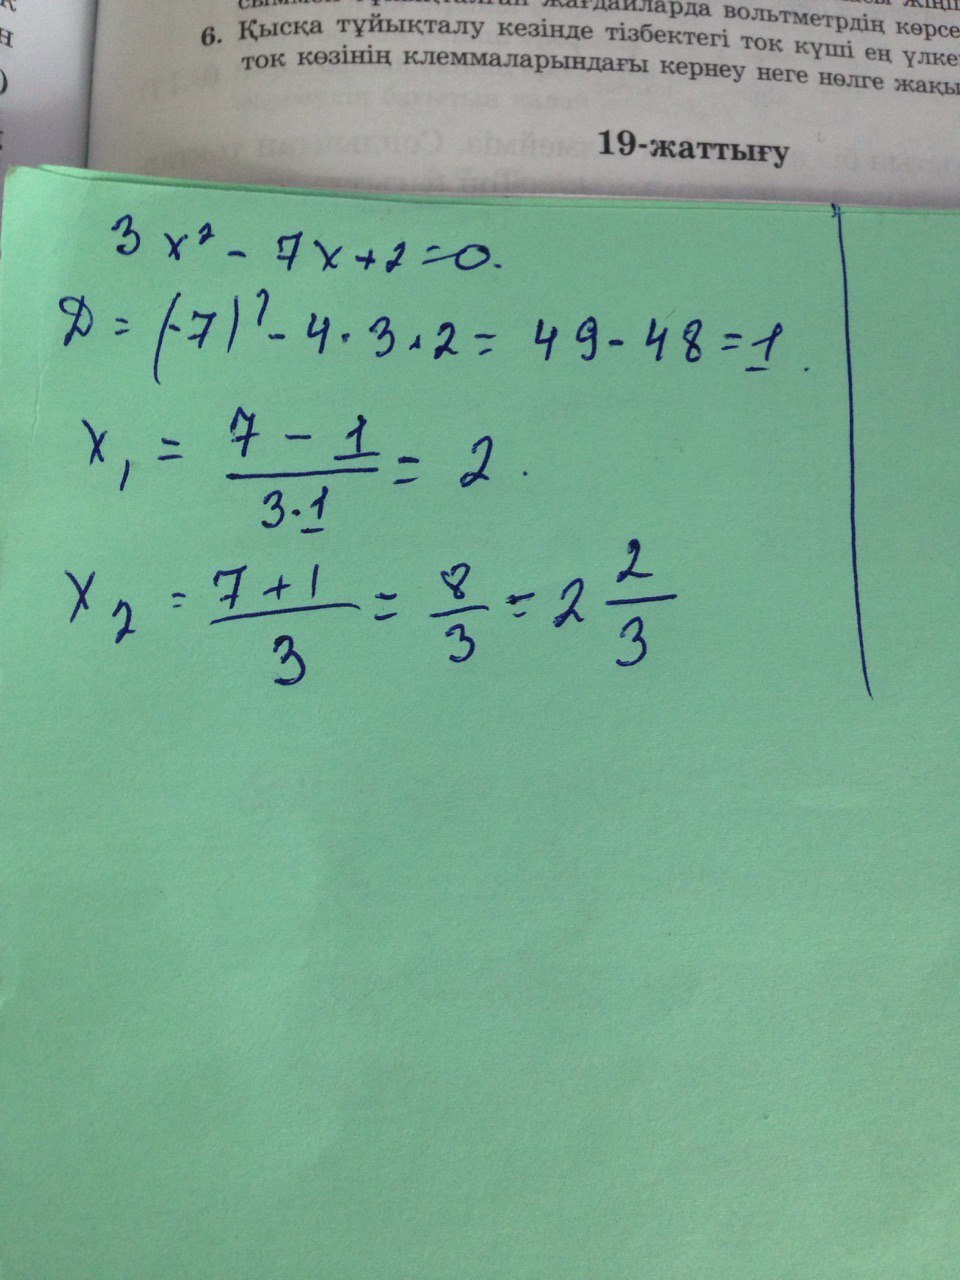 жағдайларда вольтметрдің көрсе
6. Қысқа тұйықталу кезінде тізбектегі ток күші ең үлке
ток көзінің клеммаларындағы кернеу неге нөлге жақы
19-жаттығу
3x² - 7x + 2 = 0.
D = (-7)² - 4 · 3 · 2 = 49 - 48 = 1.
x₁ = (7 - 1)/(3·1) = 2.
x₂ = (7 + 1)/3 = 8/3 = 2 2/3